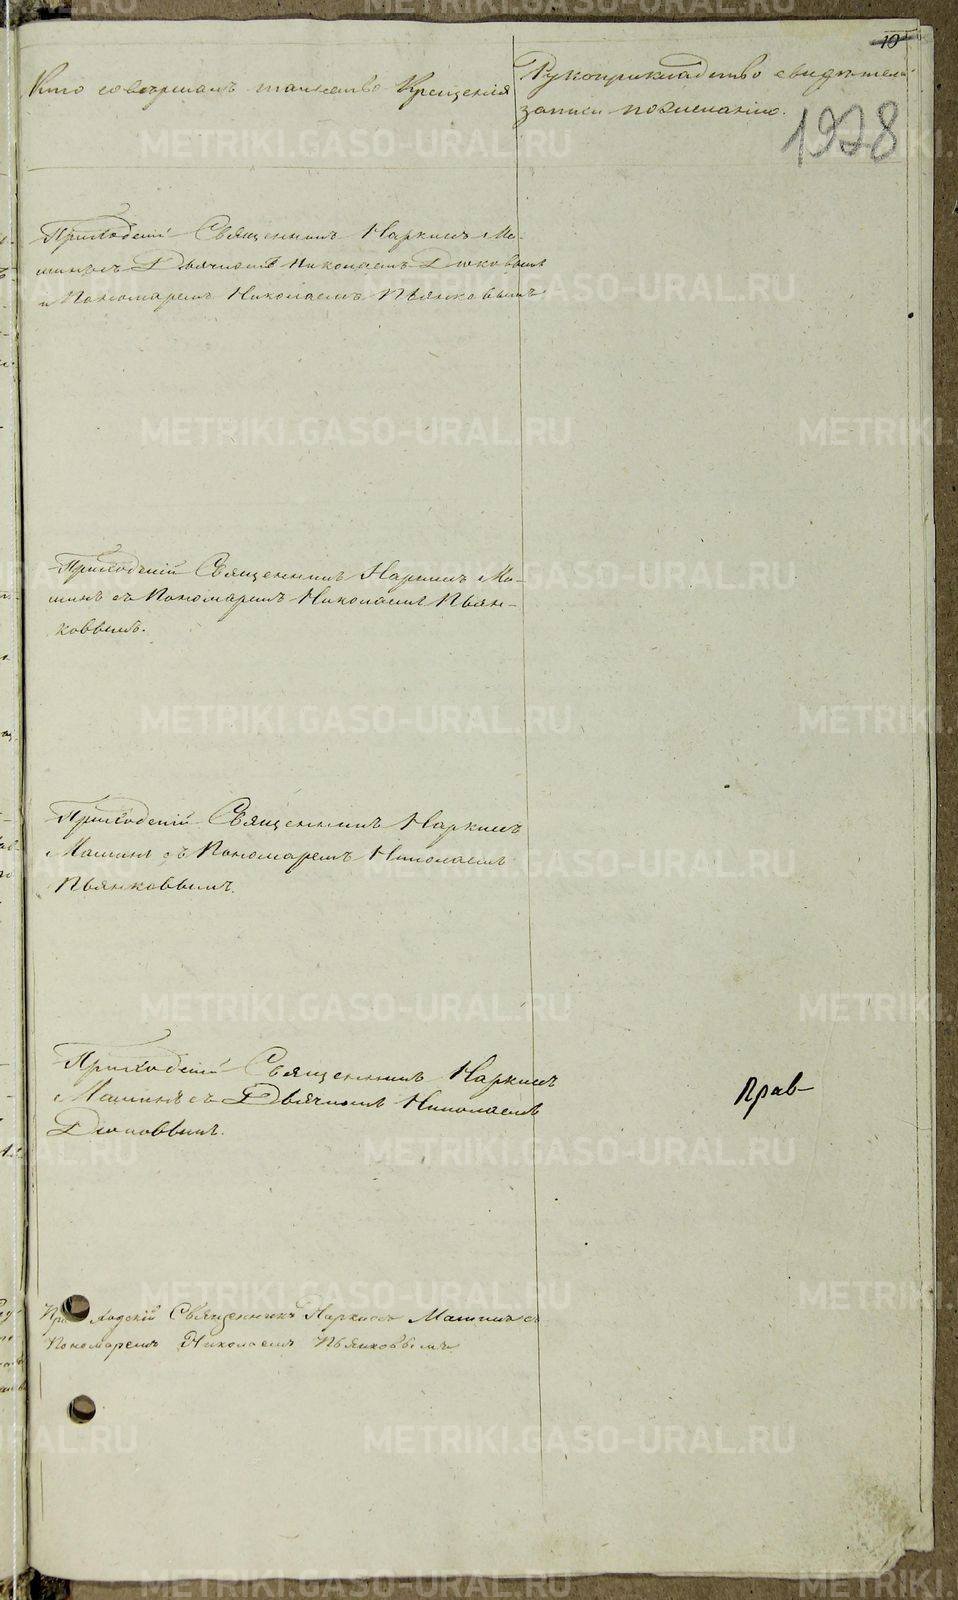 10
Кто совершалъ таинство Крещенія
Рукоприкладство свидѣтелей
записи по желанію.
1928
Приходскій Священникъ Наркисъ Ма-
шинъ съ Дьячкомъ Николаемъ Дюковымъ
и Пономаремъ Николаемъ Пьянковымъ
Приходскій Священникъ Наркисъ Ма-
шинъ съ Пономаремъ Николаемъ Пьян-
ковымъ.
Приходскій Священникъ Наркисъ
Машинъ съ Пономаремъ Николаемъ
Пьянковымъ.
Приходскій Священникъ Наркисъ
Машинъ съ Дьячкомъ Николаемъ
Дюковымъ.
Прав-
Приходскій Священникъ Наркисъ Машинъ съ
Пономаремъ Николаемъ Пьянковымъ.
METRIKI.GASO-URAL.RU